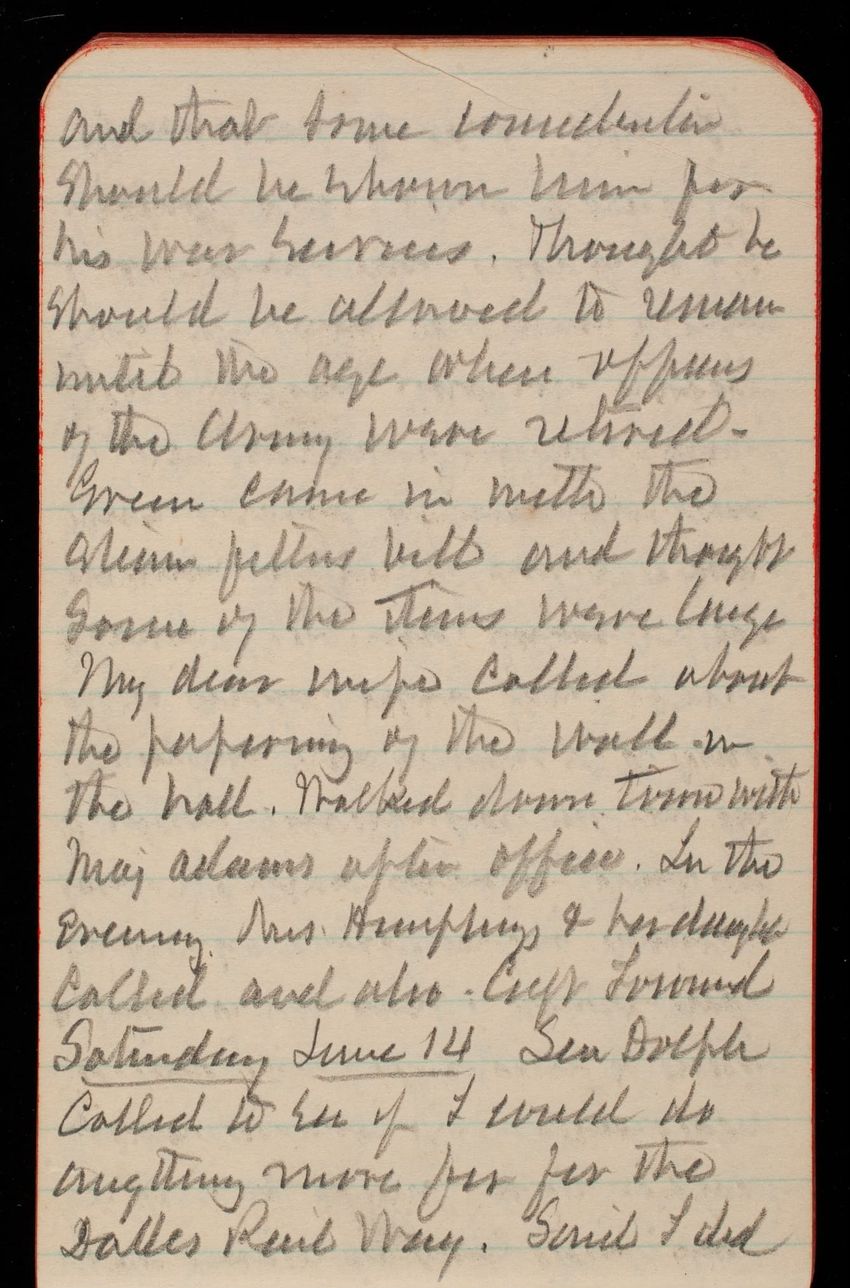 and that some consideration
should be shown him for
his war services. Thought he
should be allowed to remain
until the age when officers
of the Army were retired-
Green came in with the
steam fitters bill and thought
Some of the items were large
My dear wife called about
the papering of the wall in
the hall. Walked down town with
Maj Adams after office. In the
Evening Mrs. Humphreys & her daughter
Called and also - Capt
Saturday June 14 Sen Dolph
Called to see if I would do
anything more for for the
Dalles Rail Way. Said I did